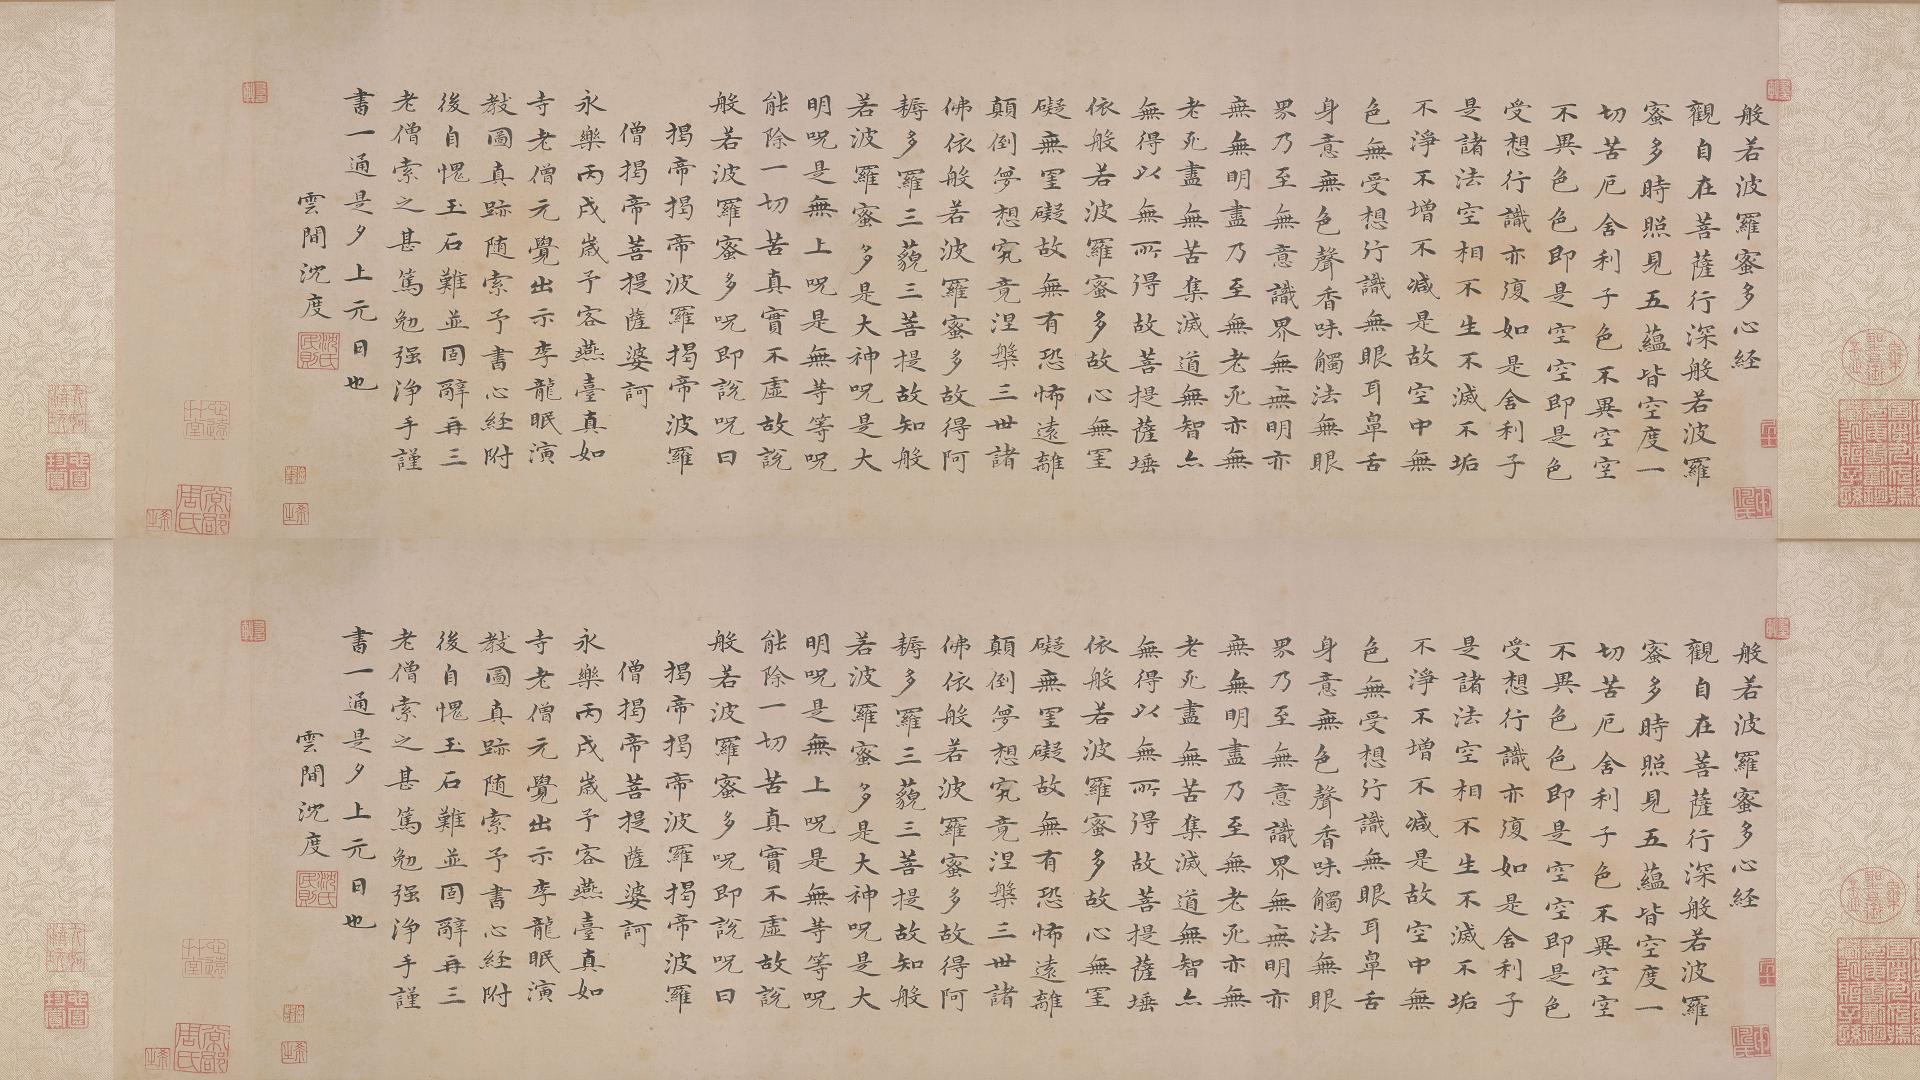 般若波羅蜜多心経
觀自在菩薩行深般若波羅
蜜多時照見五蘊皆空度一
切苦厄舍利子色不異空空
不異色色即是空空即是色
受想行識亦復如是舍利子
是諸法空相不生不滅不垢
不淨不增不減是故空中無
色無受想行識無眼耳鼻舌
身意無色聲香味觸法無眼
界乃至無意識界無無明亦
無無明盡乃至無老死亦無
老死盡無苦集滅道無智亦
無得以無所得故菩提薩埵
依般若波羅蜜多故心無罣
礙無罣礙故無有恐怖遠離
顛倒夢想究竟涅槃三世諸
佛依般若波羅蜜多故得阿
耨多羅三藐三菩提故知般
若波羅蜜多是大神呪是大
明呪是無上呪是無等等呪
能除一切苦真實不虛故說
般若波羅蜜多呪即說呪曰
揭帝揭帝波羅揭帝波羅
僧揭帝菩提薩婆訶
永樂丙戌歲予客燕臺真如
寺老僧元覺出示李龍眠演
教圖真跡随索予書心経附
後自愧玉石難並固辭再三
老僧索之甚篤勉强淨手謹
書一通是夕上元日也
雲間沈度
般若波羅蜜多心経
觀自在菩薩行深般若波羅
蜜多時照見五蘊皆空度一
切苦厄舍利子色不異空空
不異色色即是空空即是色
受想行識亦復如是舍利子
是諸法空相不生不滅不垢
不淨不增不減是故空中無
色無受想行識無眼耳鼻舌
身意無色聲香味觸法無眼
界乃至無意識界無無明亦
無無明盡乃至無老死亦無
老死盡無苦集滅道無智亦
無得以無所得故菩提薩埵
依般若波羅蜜多故心無罣
礙無罣礙故無有恐怖遠離
顛倒夢想究竟涅槃三世諸
佛依般若波羅蜜多故得阿
耨多羅三藐三菩提故知般
若波羅蜜多是大神呪是大
明呪是無上呪是無等等呪
能除一切苦真實不虛故說
般若波羅蜜多呪即說呪曰
揭帝揭帝波羅揭帝波羅
僧揭帝菩提薩婆訶
永樂丙戌歲予客燕臺真如
寺老僧元覺出示李龍眠演
教圖真跡随索予書心経附
後自愧玉石難並固辭再三
老僧索之甚篤勉强淨手謹
書一通是夕上元日也
雲間沈度